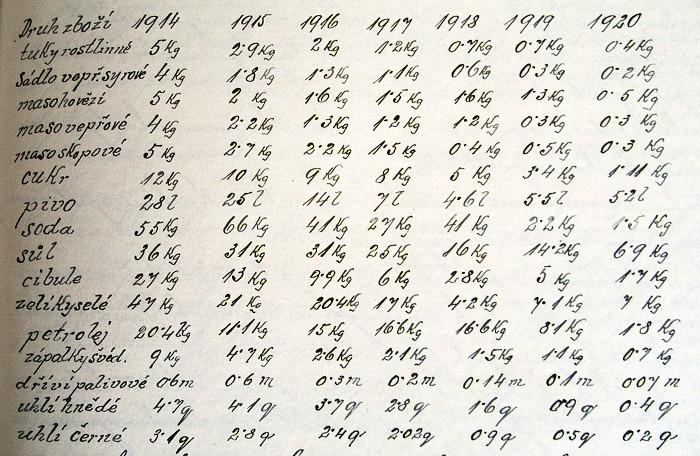 Druh zboží 1914 1915 1916 1917 1918 1919 1920
tuky rostlinné 5 Kg 2·9 Kg 2 Kg 1·2 Kg 0·7 Kg 0·7 Kg 0·4 Kg
Sádlo vepř.syrové 4 Kg 1·8 Kg 1·3 Kg 1·1 Kg 0·6 Kg 0·3 Kg 0·2 Kg
maso hovězí 5 Kg 2 Kg 1·6 Kg 1·5 Kg 1·6 Kg 1·3 Kg 0·5 Kg
maso vepřové 4 Kg 2·2 Kg 1·3 Kg 1·2 Kg 1·2 Kg 0·3 Kg 0·3 Kg
maso skopové 5 Kg 2·7 Kg 2·2 Kg 1·5 Kg 0·4 Kg 0·5 Kg 0·3 Kg
cukr 12 Kg 10 Kg 9 Kg 8 Kg 5 Kg 3·4 Kg 1·11 Kg
pivo 28 l 25 l 14 l 7 l 4·6 l 5·5 l 5·2 l
soda 55 Kg 66 Kg 41 Kg 27 Kg 41 Kg 2·2 Kg 1·5 Kg
sůl 36 Kg 31 Kg 31 Kg 25 Kg 16 Kg 14·2 Kg 6·9 Kg
cibule 27 Kg 13 Kg 9·9 Kg 6 Kg 2·8 Kg 5 Kg 1·7 Kg
zelí kyselé 47 Kg 21 Kg 20·4 Kg 17 Kg 4·2 Kg 7·1 Kg 7 Kg
petrolej 20·4 Kg 11·1 Kg 15 Kg 16·6 Kg 16·6 Kg 8·1 Kg 1·8 Kg
zápalky švéd. 9 Kg 4·7 Kg 2·6 Kg 2·1 Kg 1·5 Kg 1·1 Kg 0·7 Kg
dříví palivové 0·6 m 0·6 m 0·3 m 0·2 m 0·14 m 0·1 m 0·07 m
uhlí hnědé 4·7 q 4·1 q 3·7 q 2·8 q 1·6 q 0·9 q 0·4 q
uhlí černé 3·1 q 2·8 q 2·4 q 2·02 q 0·9 q 0·5 q 0·2 q